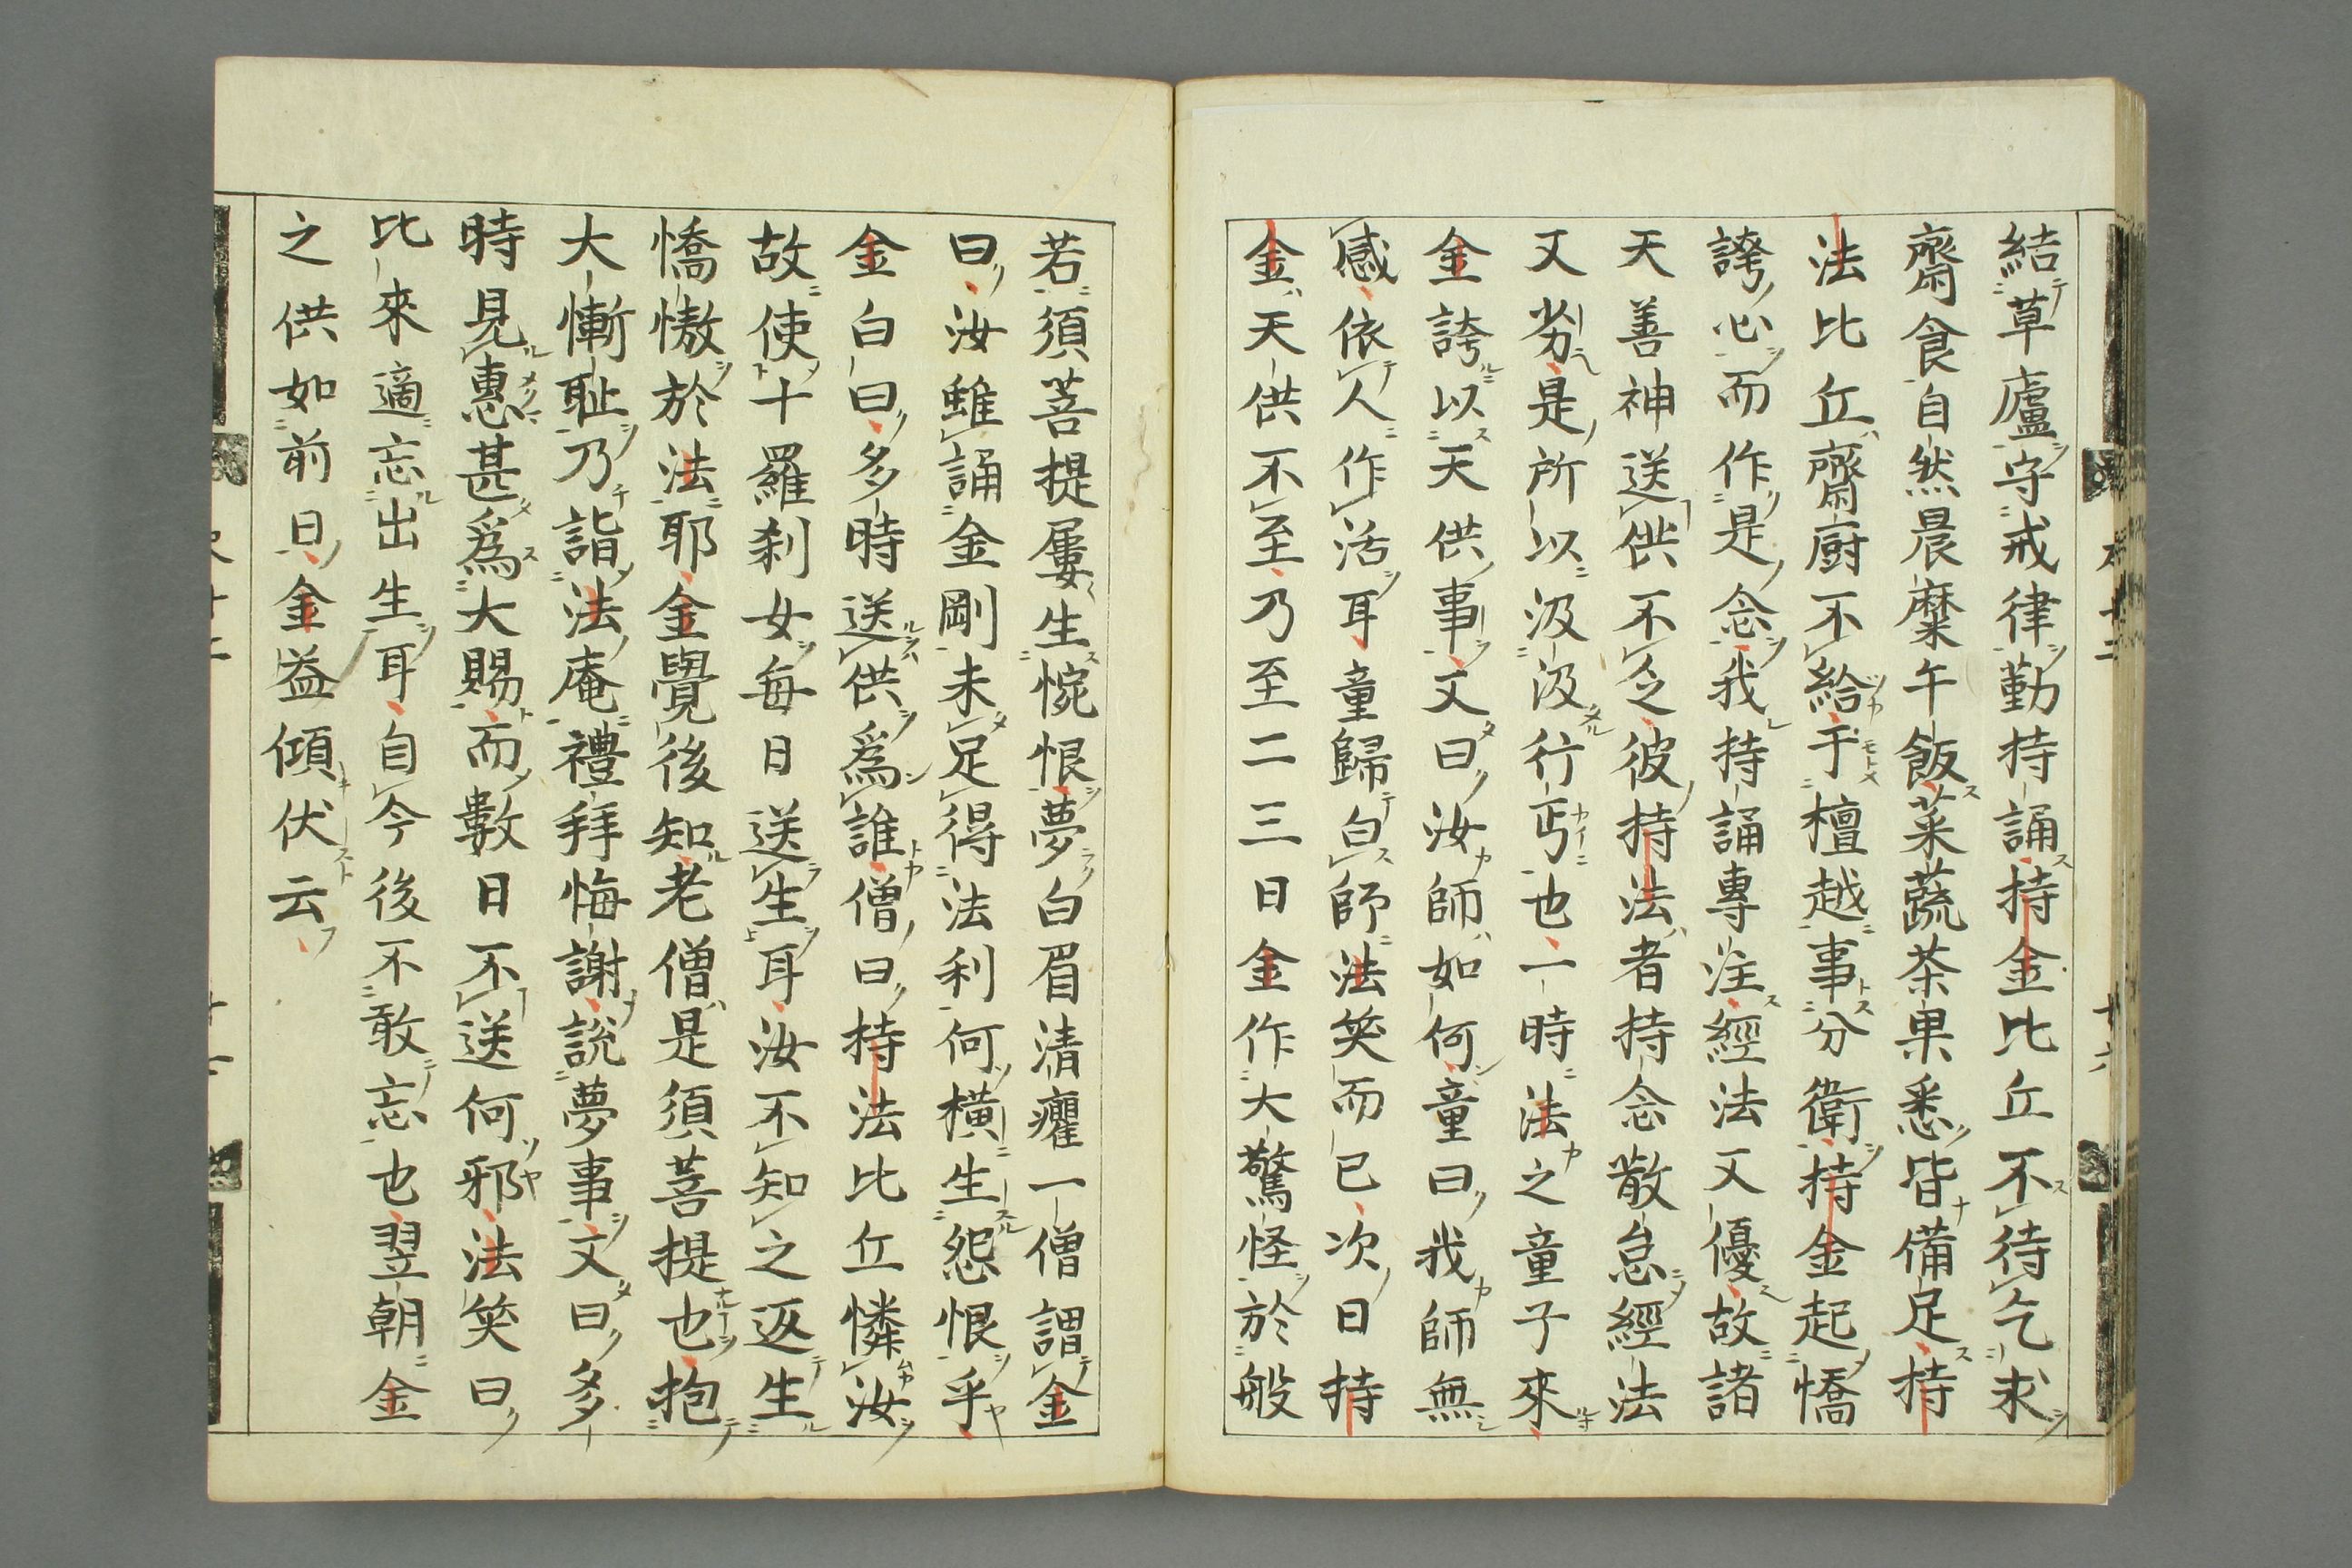 結草廬守戒律勤持誦持金比丘不待乞求
齋食自然晨糜午飯菜蔬茶果悉皆備足持
法比丘齋厨不給于檀越事分衛持金起憍
誇心而作是念我持誦專注經法又優故諸
天善神送供不乏彼持法者持念散怠經法
又劣是所以汲汲行丐也一時法之童子來
金誇以天供事文曰汝師如何童曰我師無
感依人作活耳童歸白師法笑而已次日持
金天供不至乃至二三日金作大驚怪於般
若須菩提屢生惋恨夢白眉清癯一僧謂金
曰汝雖誦金剛未足得法利何横生怨恨乎
金白曰多時送供爲誰僧曰持法比丘憐汝
故使十羅刹女每日送生耳汝不知之返生
憍慠於法耶金覺後知老僧是須菩提也抱
大慚耻乃詣法庵禮拜悔謝說夢事文曰多
時見惠甚爲大賜而數日不送何邪法笑曰
比來適忘出生耳自今後不敢忘也翌朝金
之供如前日金益傾伏云